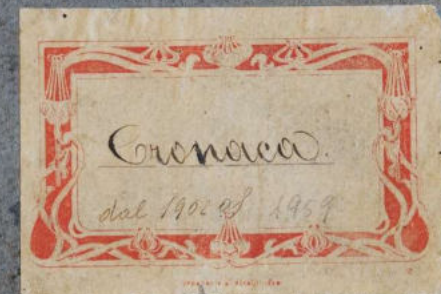 Cronaca.
dal 1902 al 1959